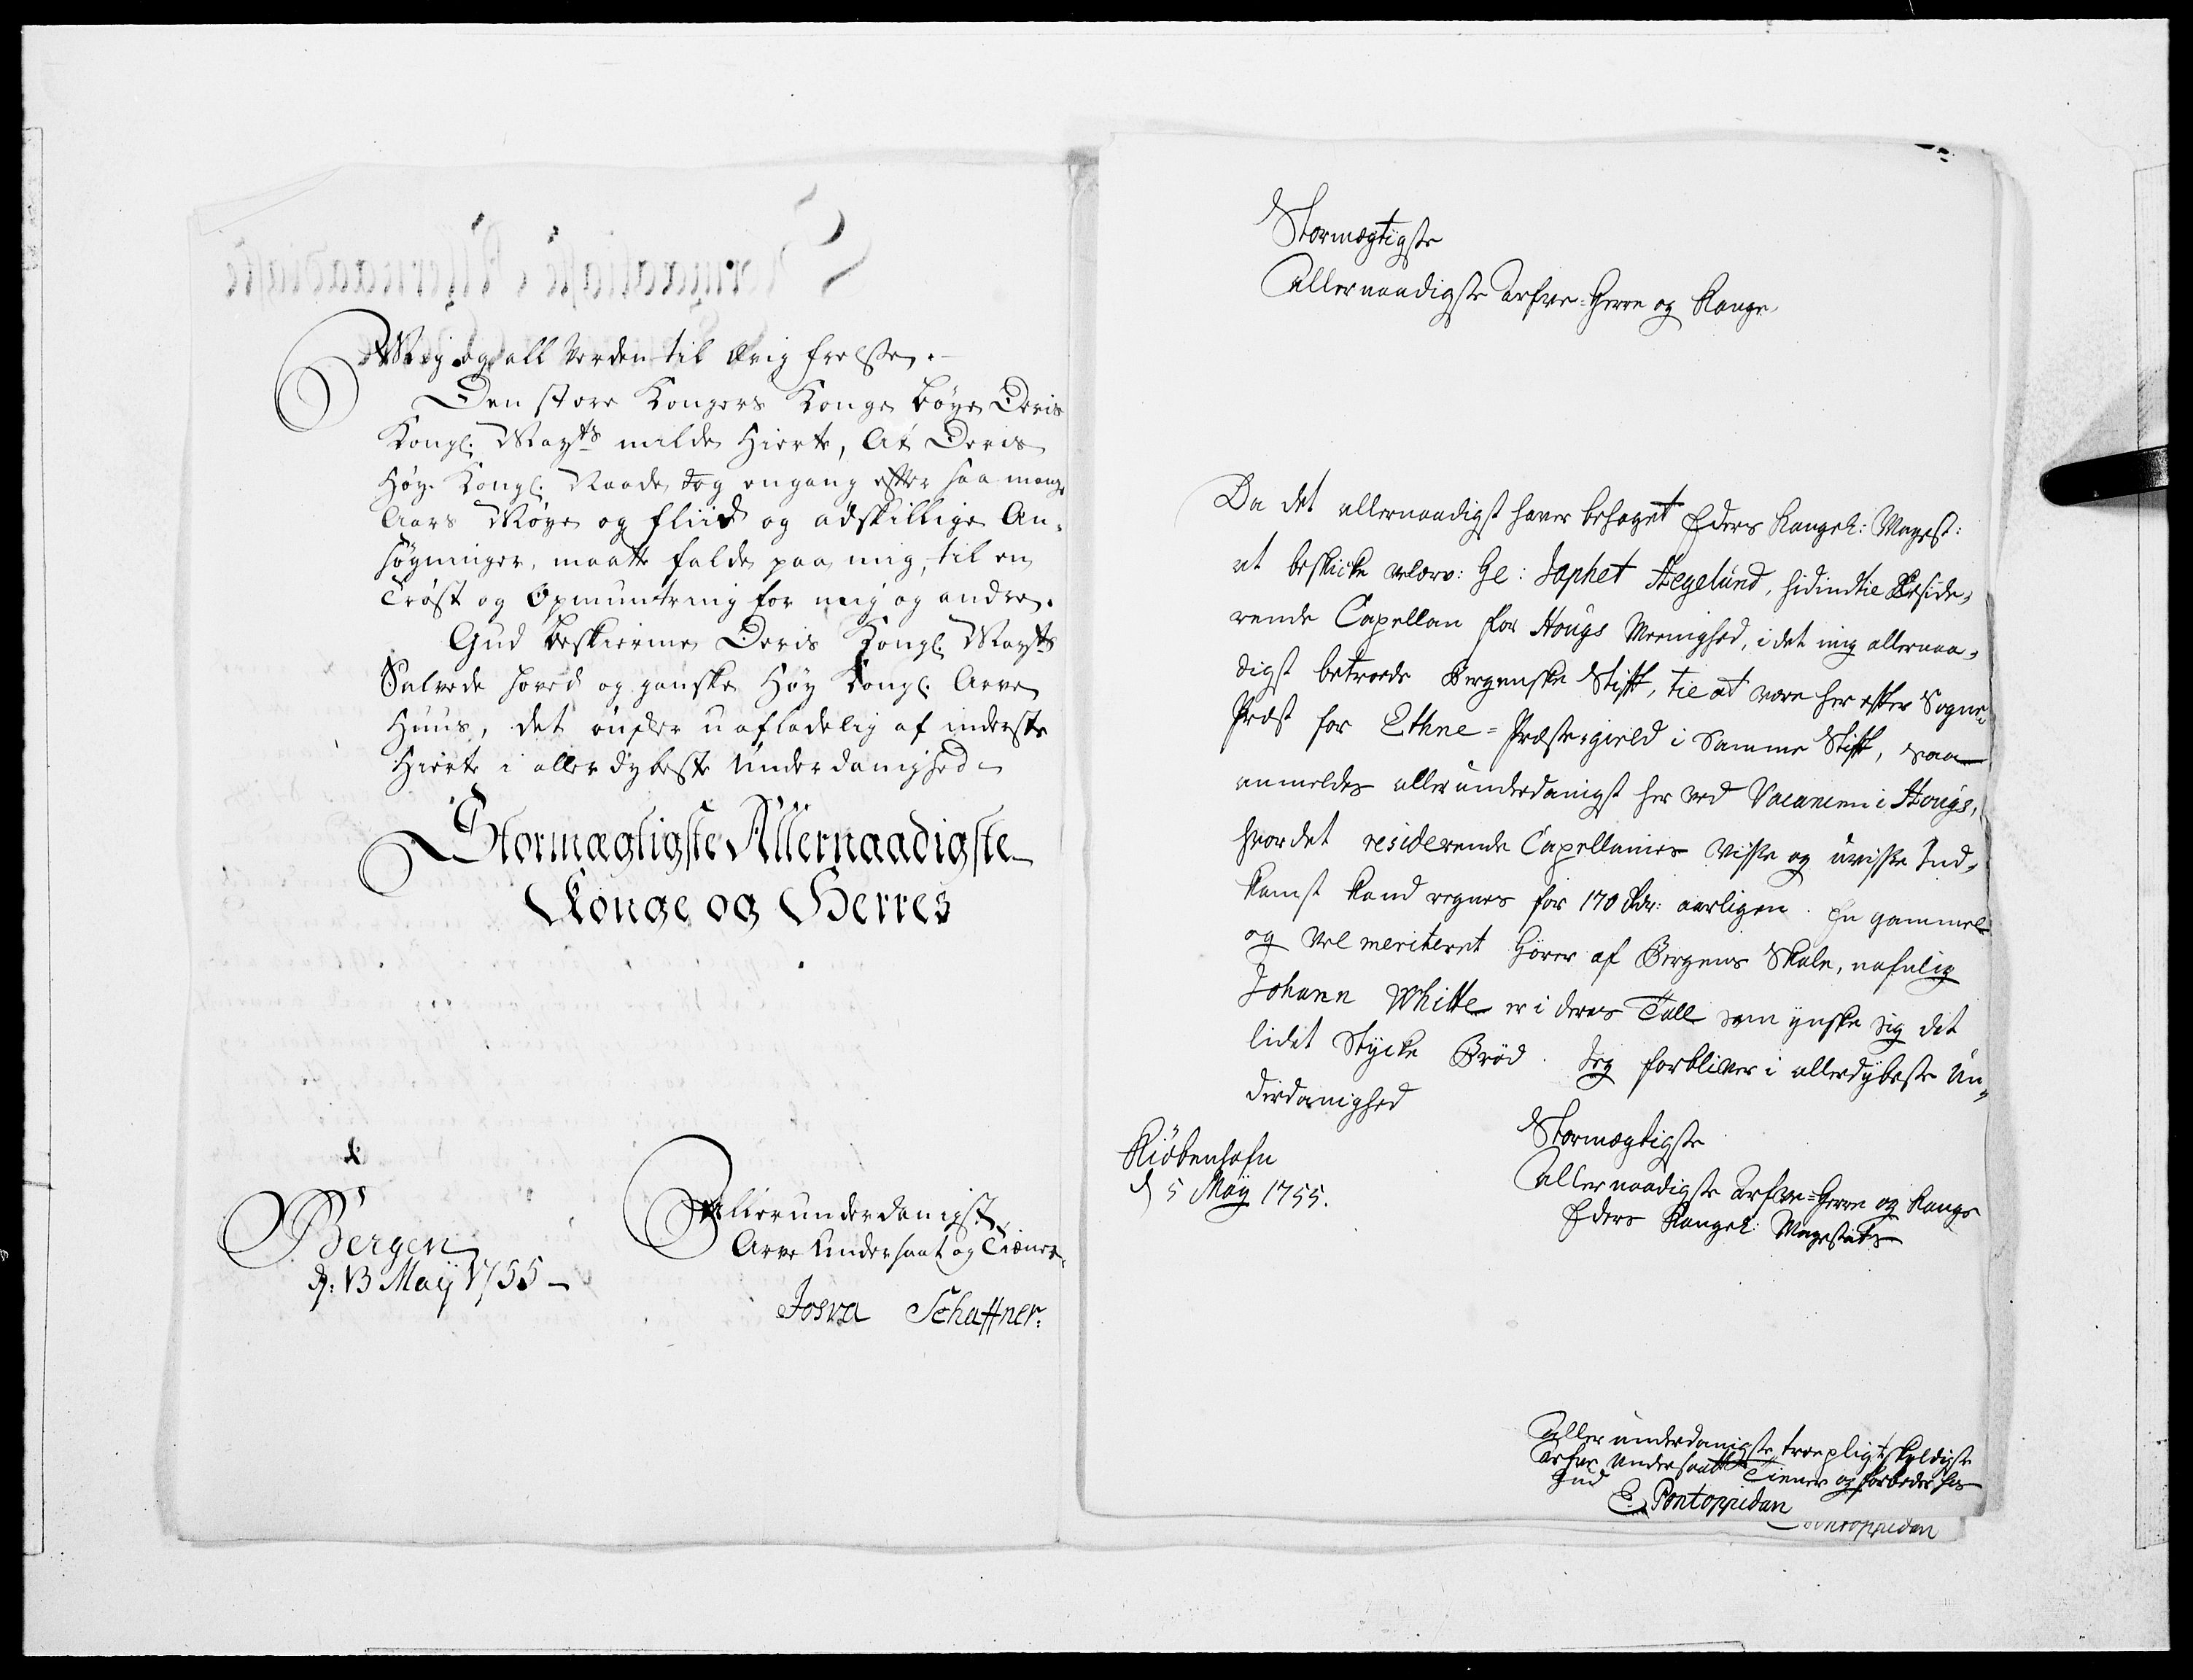 Mig og all Verden til Ævig Frelsse.
Den store Kongers Konge bøye Deris
Kongl. Mayts milde Hierte, At Deris
Høy Kongl. Naade dog engang efter saa mange
Aars Møye og Fliid og adskillige An-
søgninger, maatte falde paa mig, til en
Trøst og Opmuntring for mig og andre.
Gud beskierme Deris Kongl. Mayts
Salvede Hoved og gandske Høy Kongl. Arve
Huus, det ønsker uafladelig af inderste
Hierte i allerdybeste Underdanighed
Stormægtigste Allernaadigste
Konge og Herres
Bergen
d. 13 Maÿ 1755
Allerunderdanigst
Arve Undersaat og Tiener.
Josva Schaffner.
Stormægtigste
Allernaadigste Arfve-Herre og Konge
Da det allernaadigst haver behaget Eders Kongel: Mayest:
at beskicke velærv: Hr: Japhet Hegelund, hidindtil Reside-
rende Capellan for Hougs Meenighed, i det mig allernaa-
digst betroede Bergenske Stift, til at være her efter Sogne-
Præst for Ethne-Præstegield i Samme Stift, saa
anmeldes allerunderdanigst her ved Vacancen i Hougs,
hvor det residerende Capellanies visse og uvisse Ind-
komst kand regnes for 170 Rdr: aarligen. En gammel
og vel meriteret Hører af Bergens Skole, nafnlig
Johann Whitte er i deres Tall som ynske sig det
lidet Stycke Brød. Jeg forbliver i allerdybeste Un-
derdanighed
Kiöbenhafn
d 5 Maÿ 1755.
Stormægtigste
Allernaadigste Arfve-Herre og Konge
Eders Kongel: Mayestæts
Allerunderdanigste troepligtskyldigste
Arfve Undersaat Tiener og forbeder hos
Gud
E. Pontoppidan
Pontoppidan